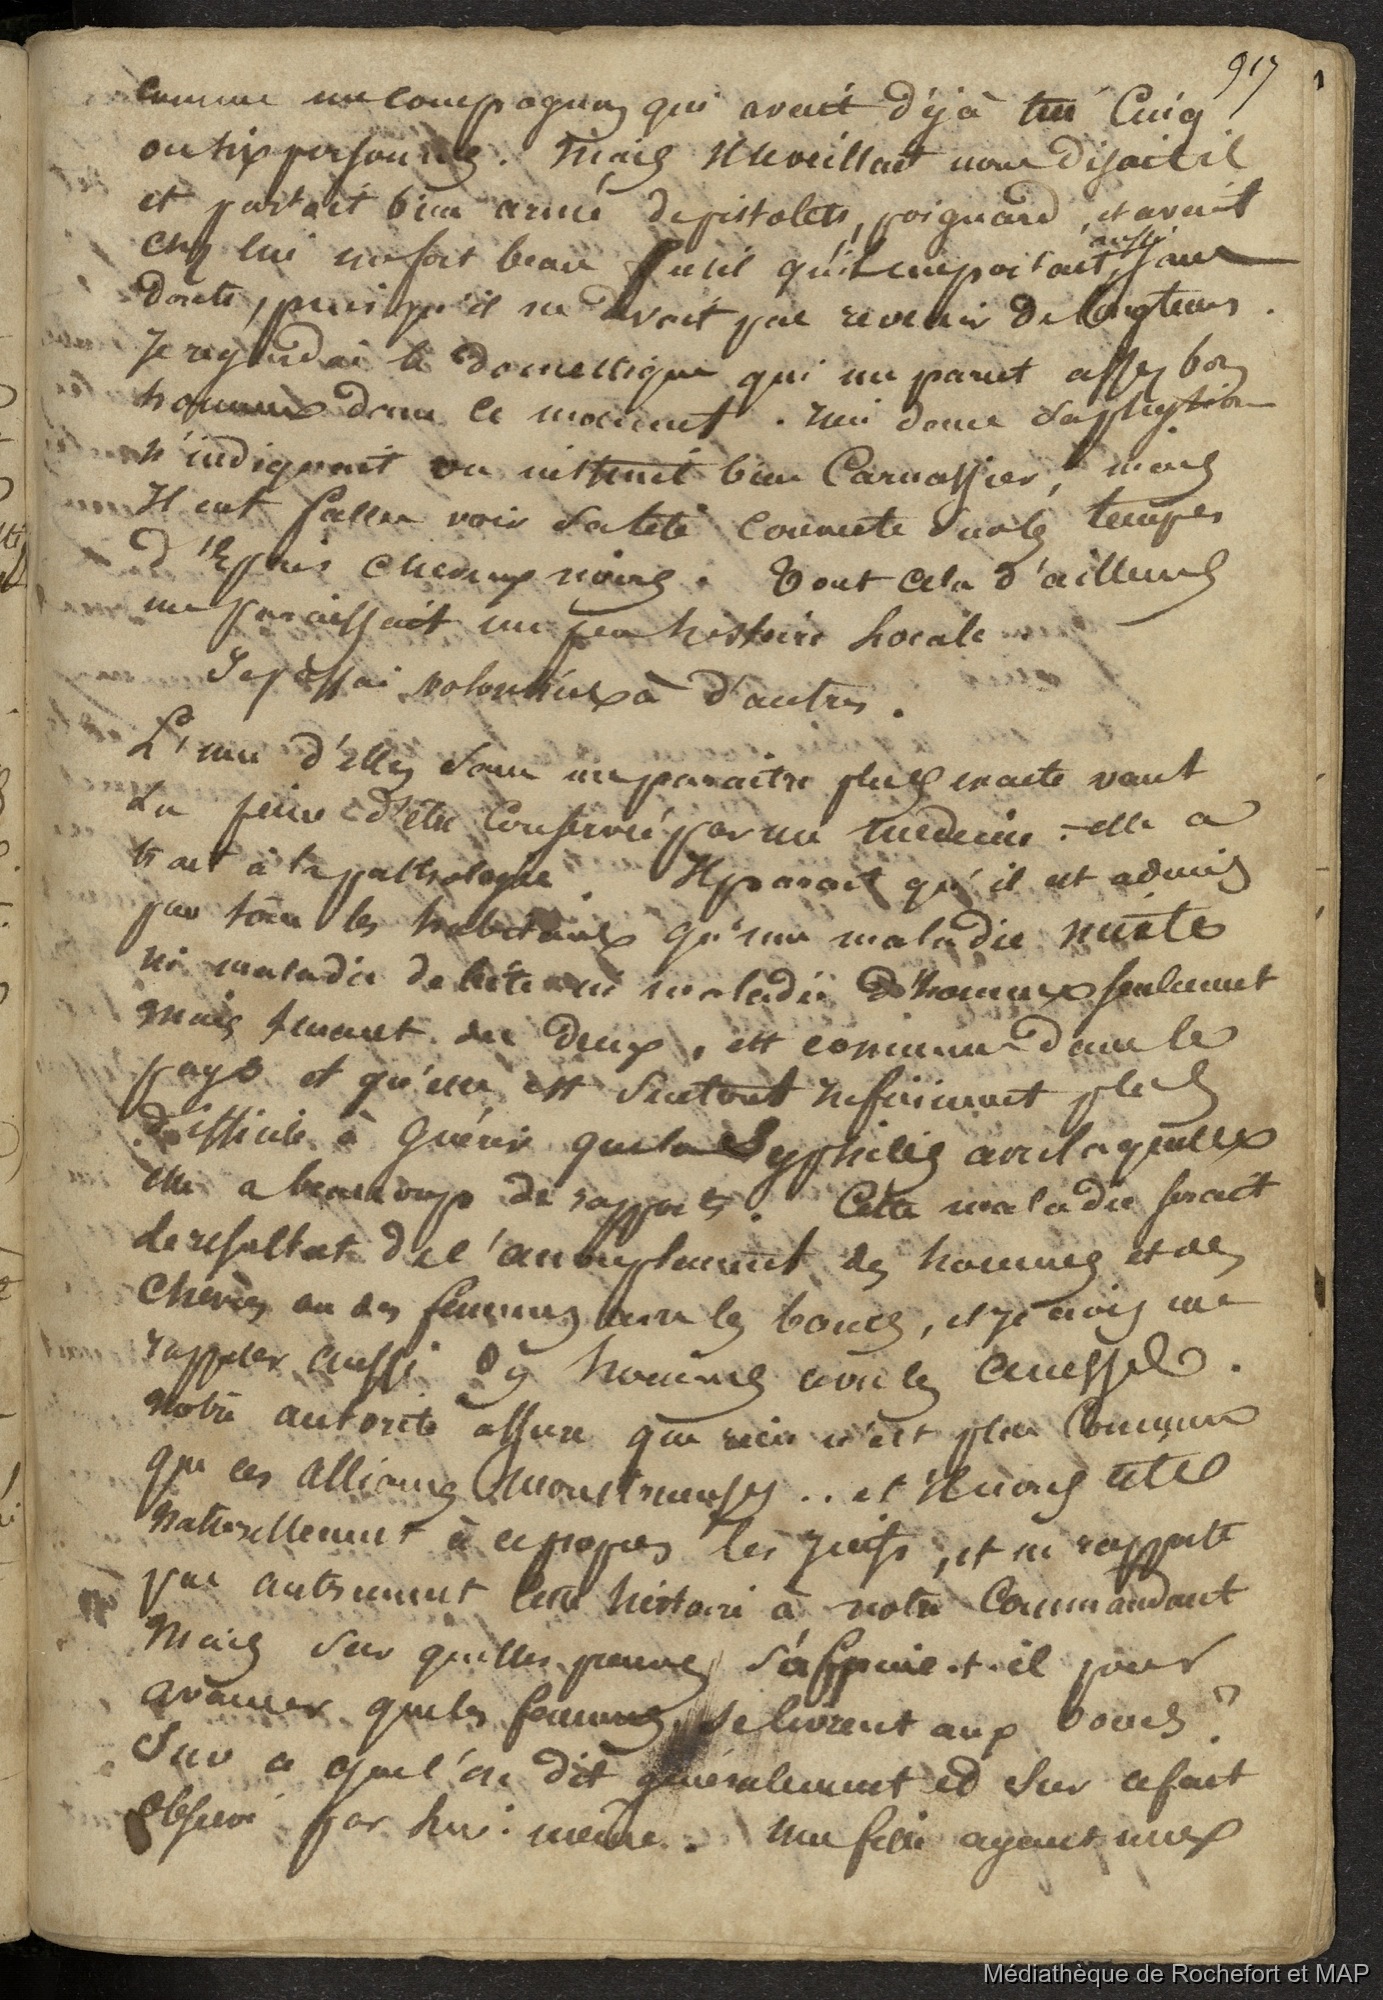 917
comme un compagnon qui avait déjà tué Cinq
ou six personnes. Mais Il veillait nous disait il
et partait bien armé de pistolets, poignard, et avait
chez lui un fort beau fusil qu'il emportait aussi sans
doute, puisqu'il ne devait pas revenir de longtems.
Je regardai le domestique qui me parut assez bon
homme dans le moment. rien dans sa physion
n'indiquait un instinct bien Carnassier, mais
Il eut fallu voir sa tete couverte sur les tempes
d'Epais cheveux noirs. Tout cela d'ailleurs
me paraissait un peu histoire locale
Je passai volontiers à d'autres.
L'une d'Elles sans me paraitre plus exacte vaut
La peine d'etre Conservée par un medecin : elle a
trait à la pathologie. Il parait qu'il est admis
par tous les habitans qu'une maladie mixte
ni maladie de bête ni maladie d'hommes seulement
mais tenant des deux, est commune dans le
pays et qu'elle est surtout Infiniment plus
difficile à Guérir que la Syphilis avec laquelle
elle a beaucoup de rapports. Cette maladie serait
le resultat de l'accouplement des hommes et des
Chevres ou des femmes avec les boucs, et je crois me
rappeler aussi des hommes avec les anesses.
Notre autorité assure que rien n'est plus Commun
que ces alliances monstrueuses .. et Il nous cite
naturellement à ce propos les Juifs, et ne rapporte
pas autrement cette histoire à notre Commandant
Mais sur quelles preuves s'appuie-t-il pour
avancer que les femmes se livrent aux boucs ?
Sur ce que l'on dit généralement et sur ce fait
observé par lui-meme. Une fille ayant mis
Médiathèque de Rochefort et MAP